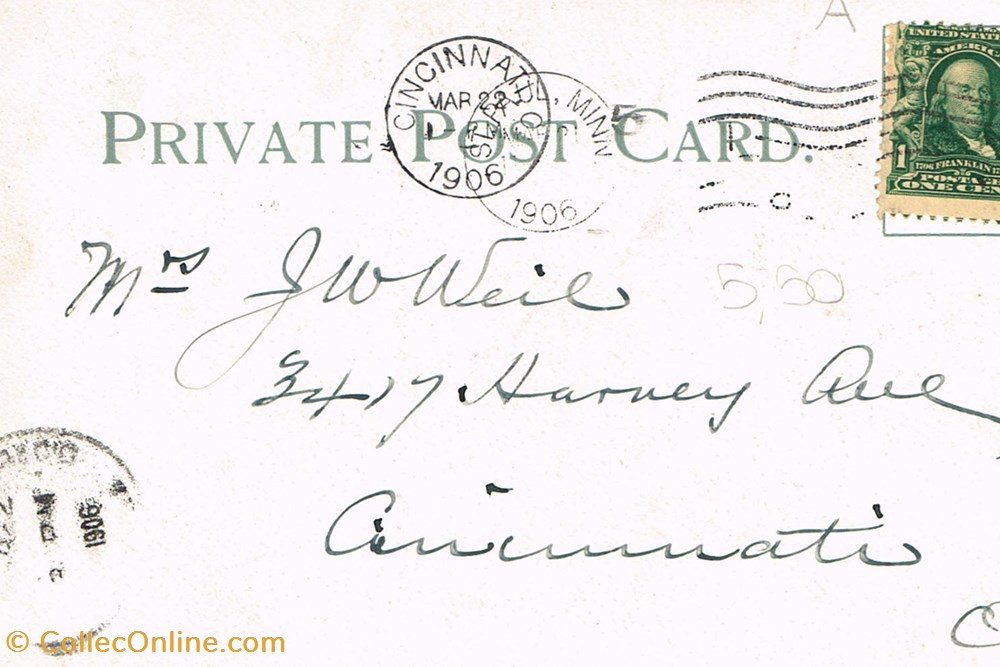 A
UNITED STATES
AMERICA
1
1706 FRANKLIN
POSTAGE
ONE CENT
CINCINNATI, O
MAR 22
1906
MINN
1906
PRIVATE POST CARD.
Mrs J W Weil
5,50
3417 Harvey Ave
Cincinnati
1906
© CollecOnline.com